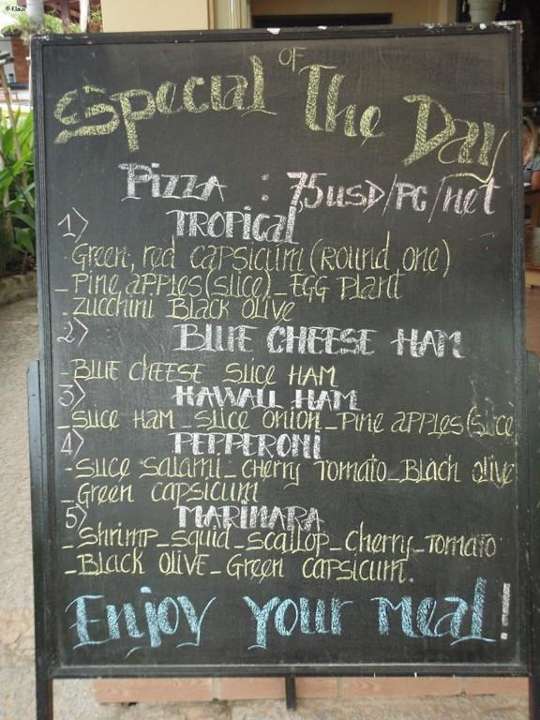 © Klaus
Special OF The Day
PIZZA : 7,5 USD/PC/net
1) TROPICAL
- Green, red capsicum (Round one)
- Pine apples (slice) - EGG PLANT
- zucchini Black Olive
2) BLUE CHEESE HAM
- BLUE CHEESE SLICE HAM
3) HAWAII HAM
- SLICE HAM - SLICE ONION - PINE APPLES (SLICE
4) PEPPERONI
- SLICE SALAMI - CHERRY TOMATO - BLACK OLIVE
- Green CAPSICUM
5) MARINARA
- Shrimp - squid - scallop - Cherry - Tomato
- Black OLIVE - Green CAPSICUM.
Enjoy Your Meal